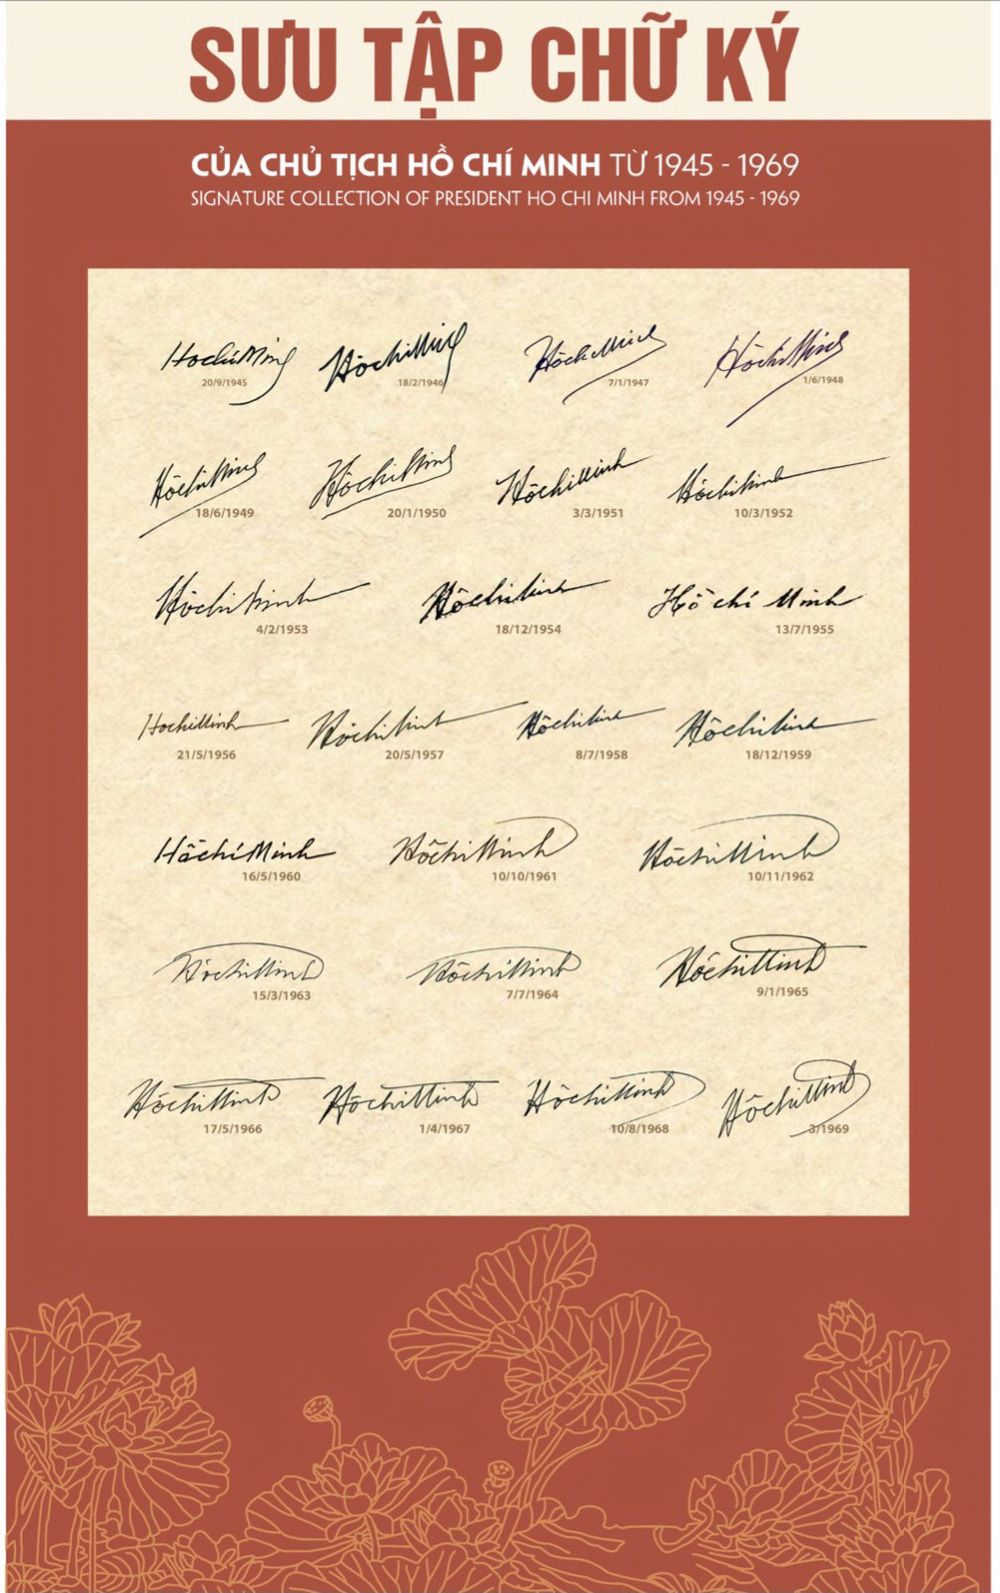 SƯU TẬP CHỮ KÝ
CỦA CHỦ TỊCH HỒ CHÍ MINH TỪ 1945 - 1969
SIGNATURE COLLECTION OF PRESIDENT HO CHI MINH FROM 1945 - 1969
HochiMinh HồchiMinh HồchiMinh HồchiMinh
20/9/1945 18/2/1946 7/1/1947 1/6/1948
HồchiMinh HồchiMinh HồchiMinh Hồchiminh
18/6/1949 20/1/1950 3/3/1951 10/3/1952
Hồchiminh Hồchiminh Hồ chí Minh
4/2/1953 18/12/1954 13/7/1955
HochiMinh Hồchiminh Hồchiminh Hồchiminh
21/5/1956 20/5/1957 8/7/1958 18/12/1959
HồchíMinh HồchiMinh HồchiMinh
16/5/1960 10/10/1961 10/11/1962
HồchiMinh HồchiMinh HồchiMinh
15/3/1963 7/7/1964 9/1/1965
HồchiMinh HồchiMinh HồchiMinh HồchiMinh
17/5/1966 1/4/1967 10/8/1968 3/1969